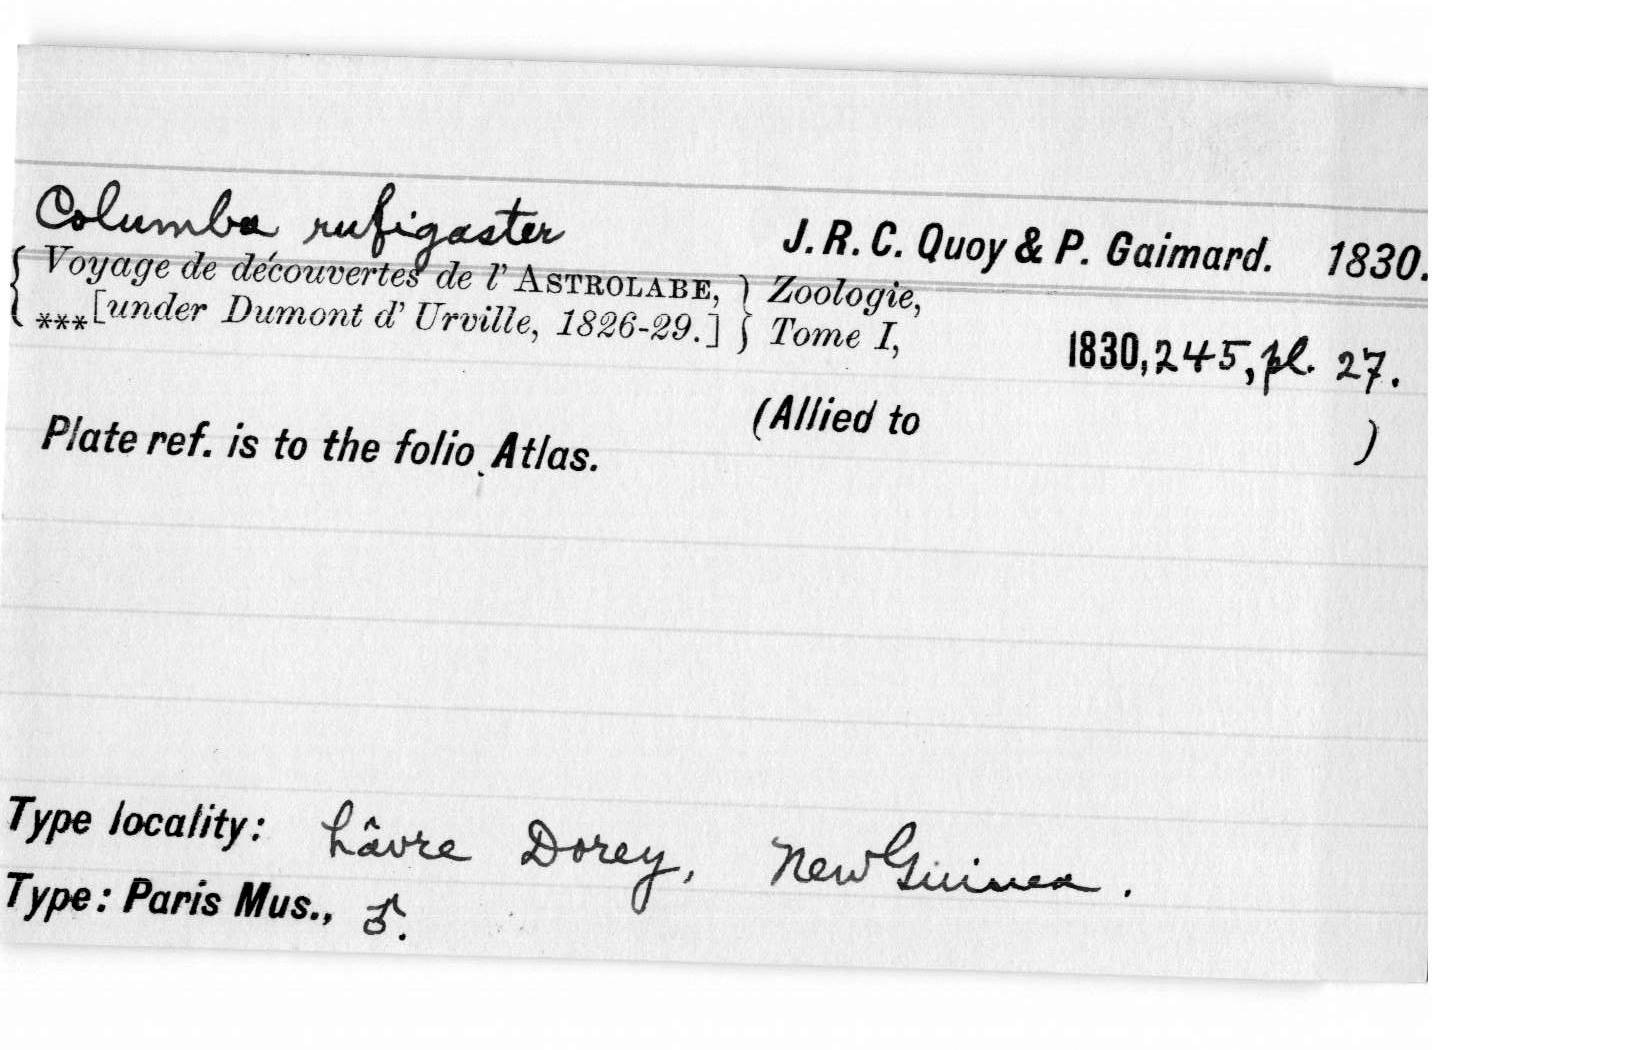 Columba rufigaster J. R. C. Quoy & P. Gaimard. 1830.
{ Voyage de découvertes de l' ASTROLABE, } Zoologie,
***[under Dumont d' Urville, 1826-29.] } Tome I, 1830, 245, pl. 27.
(Allied to )
Plate ref. is to the folio Atlas.
Type locality: hâvre Dorey, New Guinea.
Type: Paris Mus., ♂.